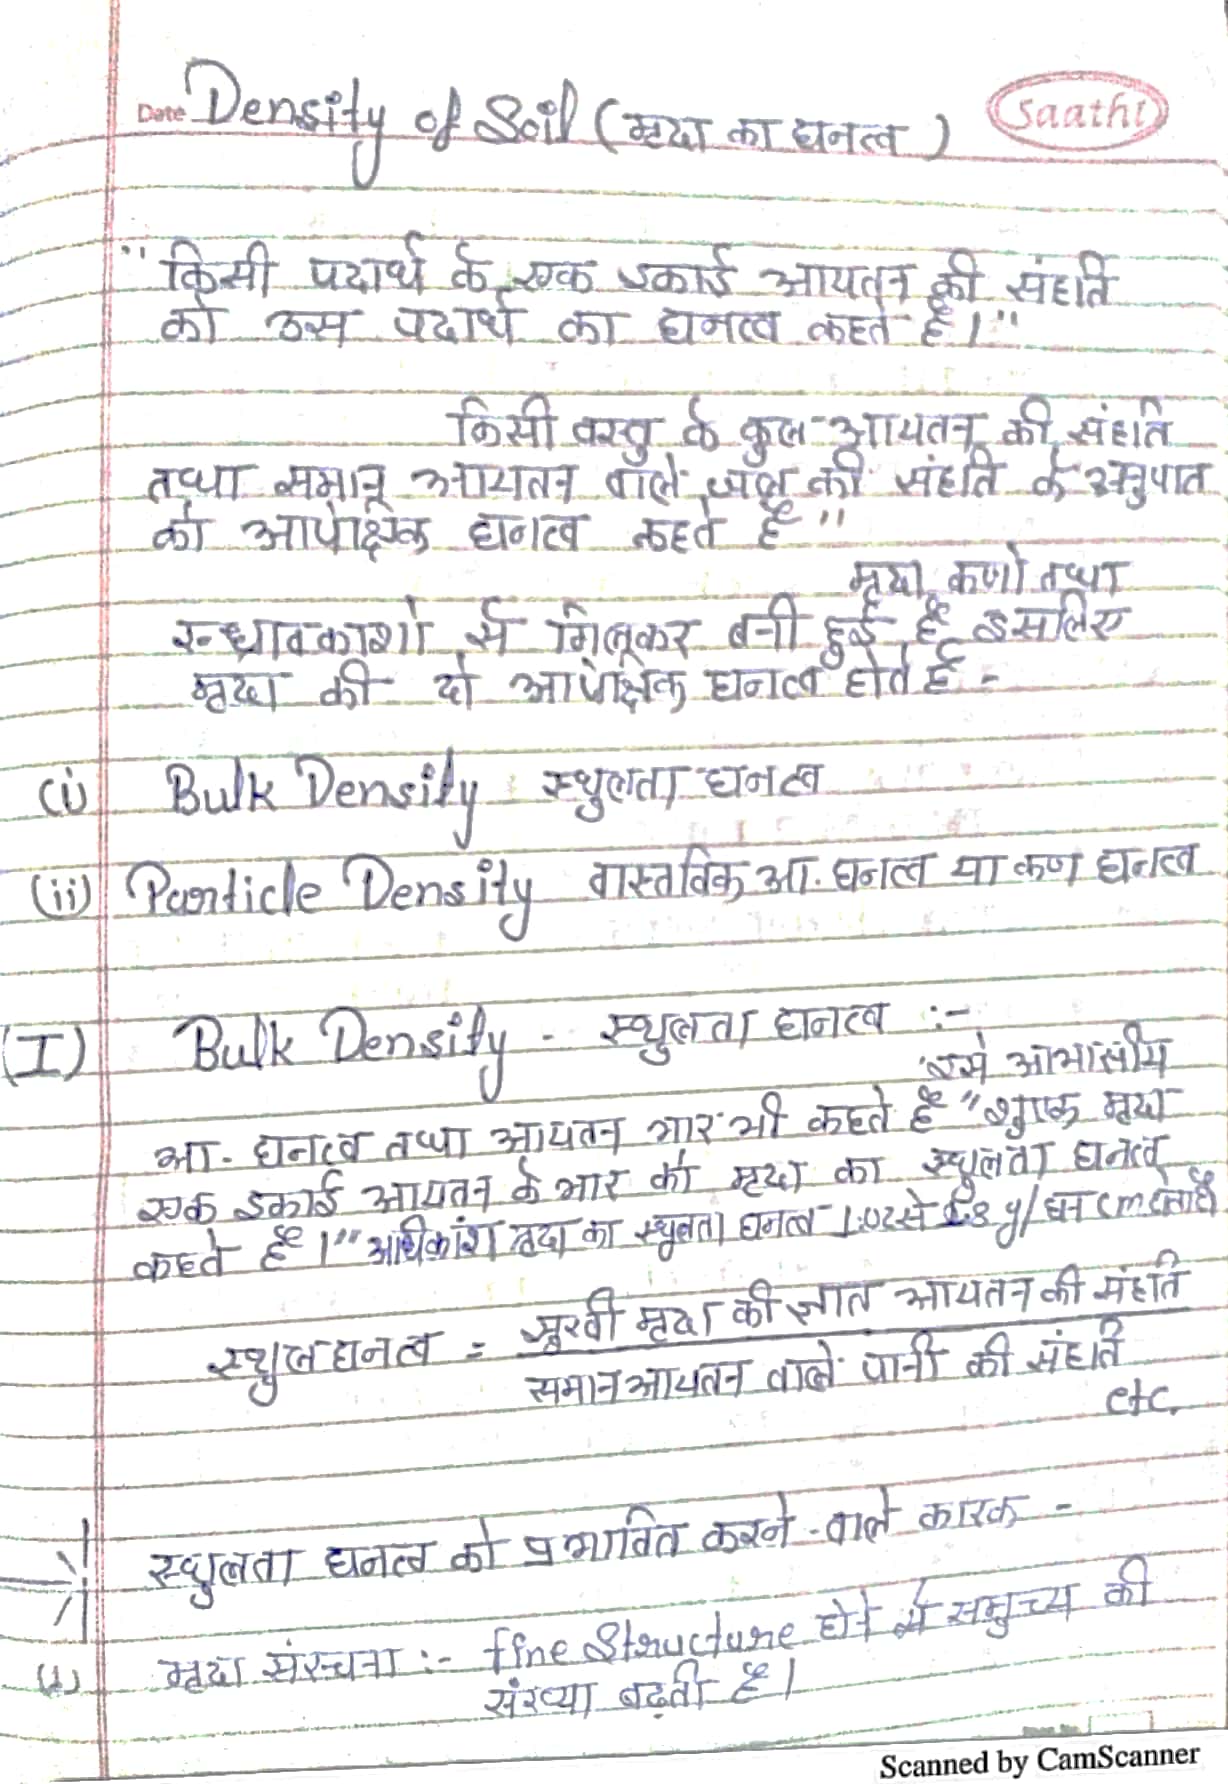 Date Density of Soil (मृदा का घनत्व) Saathi
"किसी पदार्थ के एक इकाई आयतन की संहति
को उस पदार्थ का घनत्व कहते हैं।"
किसी वस्तु के कुल आयतन की संहति
तथा समान आयतन वाले जल की संहति के अनुपात
को आपेक्षिक घनत्व कहते हैं"
मृदा कणों तथा
रन्ध्रावकाशों से मिलकर बनी हुई है इसलिए
मृदा की दो आपेक्षिक घनत्व होते हैं -
(i) Bulk Density स्थुलता घनत्व
(ii) Particle Density वास्तविक आ. घनत्व या कण घनत्व
(I) Bulk Density - स्थुलता घनत्व :-
इसे आभासीय
आ. घनत्व तथा आयतन भार भी कहते हैं "शुष्क मृदा
एक इकाई आयतन के भार को मृदा का स्थुलता घनत्व
कहते हैं।" अधिकांश मृदा का स्थुलता घनत्व 1.02 से 1.8 g/घन cm होता है
स्थुल घनत्व = सुखी मृदा की ज्ञात आयतन की संहति
समान आयतन वाले पानी की संहति
etc.
स्थुलता घनत्व को प्रभावित करने वाले कारक -
मृदा संरचना :- fine Structure होने से समुच्य की
संख्या बढ़ती है।
Scanned by CamScanner